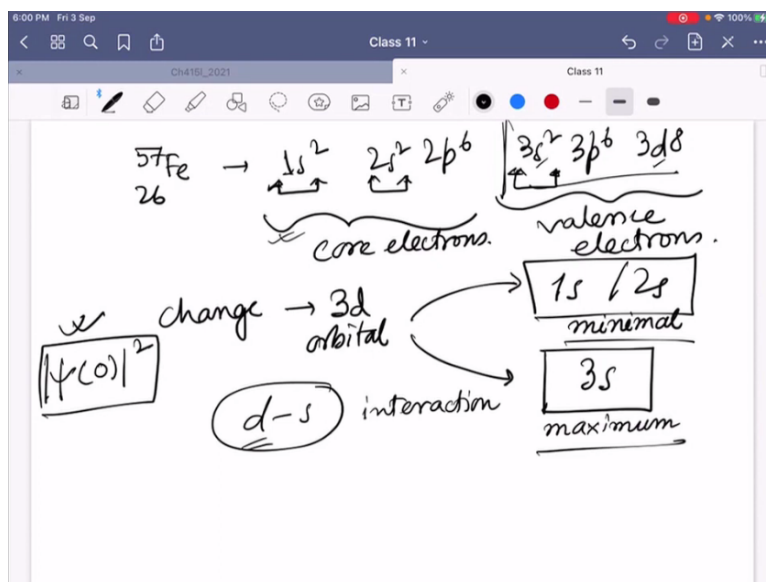 6:00 PM Fri 3 Sep
100%
Class 11
Ch415I_2021
Class 11
57Fe → 1s² 2s² 2p⁶ 3s² 3p⁶ 3d8
26
core electrons.
valence
electrons.
change → 3d
orbital
1s / 2s
minimal
|ψ(0)|²
3s
maximum
d-s interaction